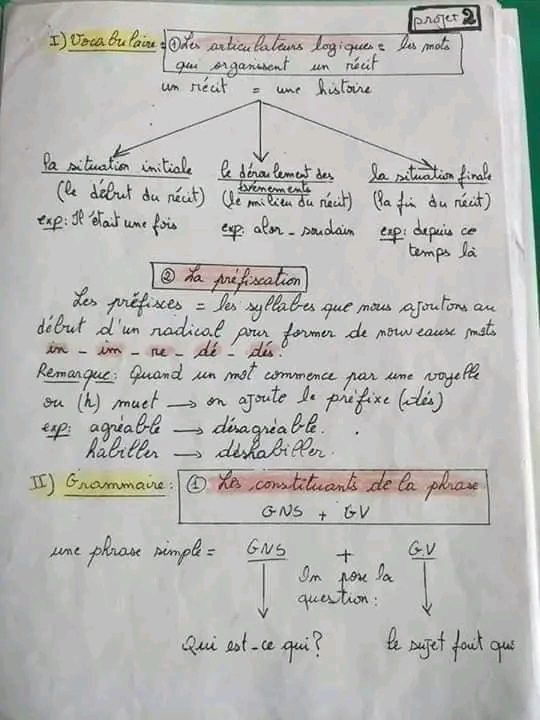 projet 2
I) Vocabulaire : ① Les articulateurs logiques = les mots
qui organisent un récit
un récit = une histoire
la situation initiale le déroulement des la situation finale
évènements
(le début du récit) (le milieu du récit) (la fin du récit)
exp: Il était une fois exp: alor - soudain exp: depuis ce
temps là
② La préfixation
Les préfixes = les syllabes que nous ajoutons au
début d'un radical pour former de nouveaux mots
in - im - re - dé - dés.
Remarque: Quand un mot commence par une voyelle
ou (h) muet → on ajoute le préfixe (dés)
exp: agréable → désagréable.
habiller → déshabiller.
II) Grammaire : ① Les constituants de la phrase
GNS + GV
une phrase simple = GNS + G.V
On pose la
question :
Qui est-ce qui? le sujet fait que